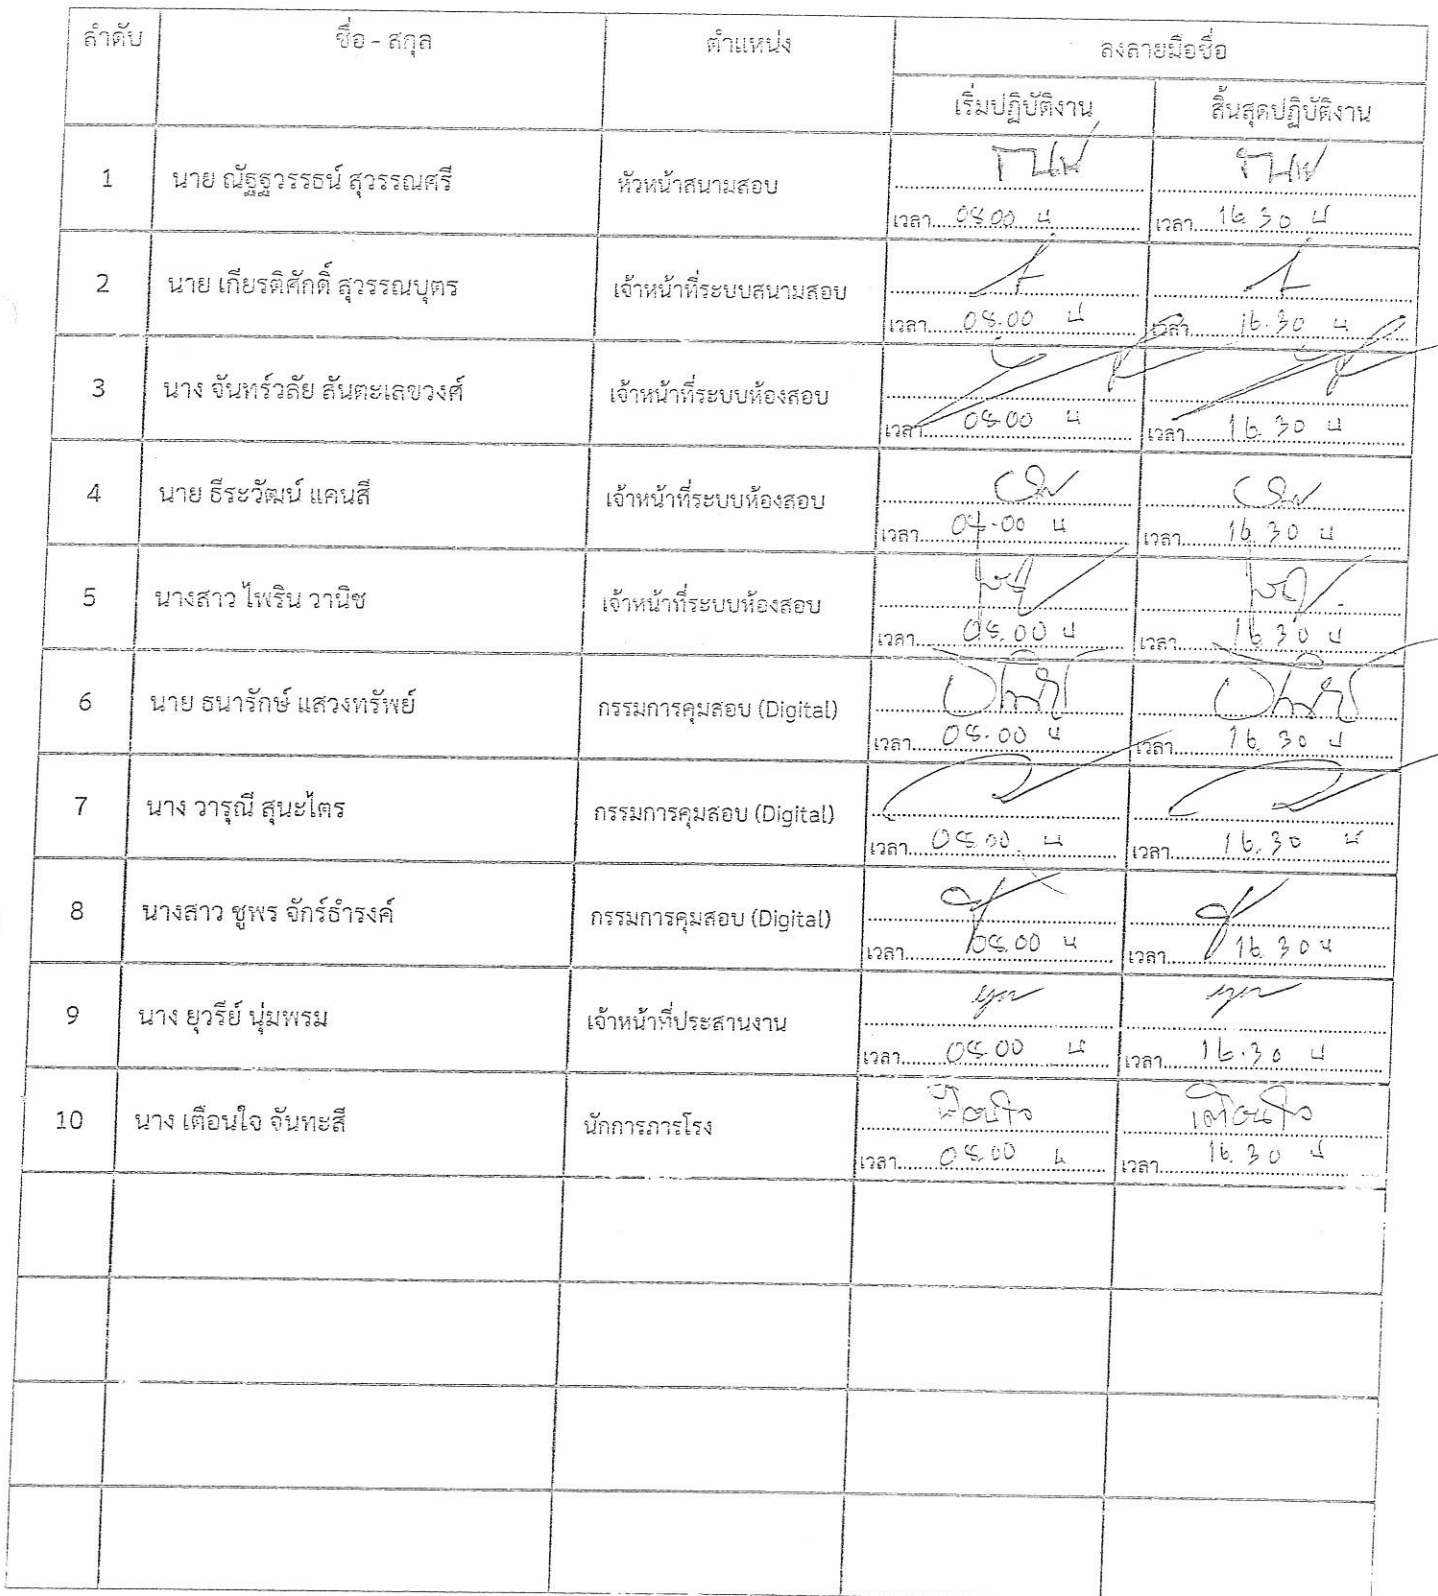 ลำดับ ชื่อ - สกุล ตำแหน่ง ลงลายมือชื่อ
เริ่มปฏิบัติงาน สิ้นสุดปฏิบัติงาน
1 นาย ณัฐฐวรรธน์ สุวรรณศรี หัวหน้าสนามสอบ
เวลา 08.00 น เวลา 16.30 น
2 นาย เกียรติศักดิ์ สุวรรณบุตร เจ้าหน้าที่ระบบสนามสอบ
เวลา 08.00 น เวลา 16.30 น
3 นาง จันทร์วลัย สันตะเลขวงศ์ เจ้าหน้าที่ระบบห้องสอบ
เวลา 08.00 น เวลา 16.30 น
4 นาย ธีระวัฒน์ แคนสี เจ้าหน้าที่ระบบห้องสอบ
เวลา 08.00 น เวลา 16.30 น
5 นางสาว ไพริน วานิช เจ้าหน้าที่ระบบห้องสอบ
เวลา 08.00 น เวลา 16.30 น
6 นาย ธนารักษ์ แสวงทรัพย์ กรรมการคุมสอบ (Digital)
เวลา 08.00 น เวลา 16.30 น
7 นาง วารุณี สุนะไตร กรรมการคุมสอบ (Digital)
เวลา 08.00 น เวลา 16.30 น
8 นางสาว ชูพร จักร์ธำรงค์ กรรมการคุมสอบ (Digital)
เวลา 08.00 น เวลา 16.30 น
9 นาง ยุวรีย์ นุ่มพรม เจ้าหน้าที่ประสานงาน
เวลา 08.00 น เวลา 16.30 น
10 นาง เตือนใจ จันทะสี นักการภารโรง เตือนใจ
เวลา 08.00 น เวลา 16.30 น